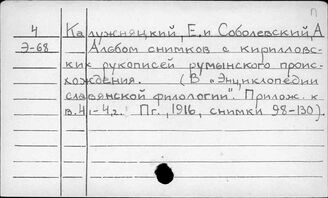 П
4 Калужняцкий, Е. и Соболевский, А
Э-68 Альбом снимков с кирилловс-
ких рукописей румынского проис-
хождения. (В "Энциклопедии
славянской филологии". Прилож. к
в.4,-4,2. Пг., 1916, снимки 98-130).